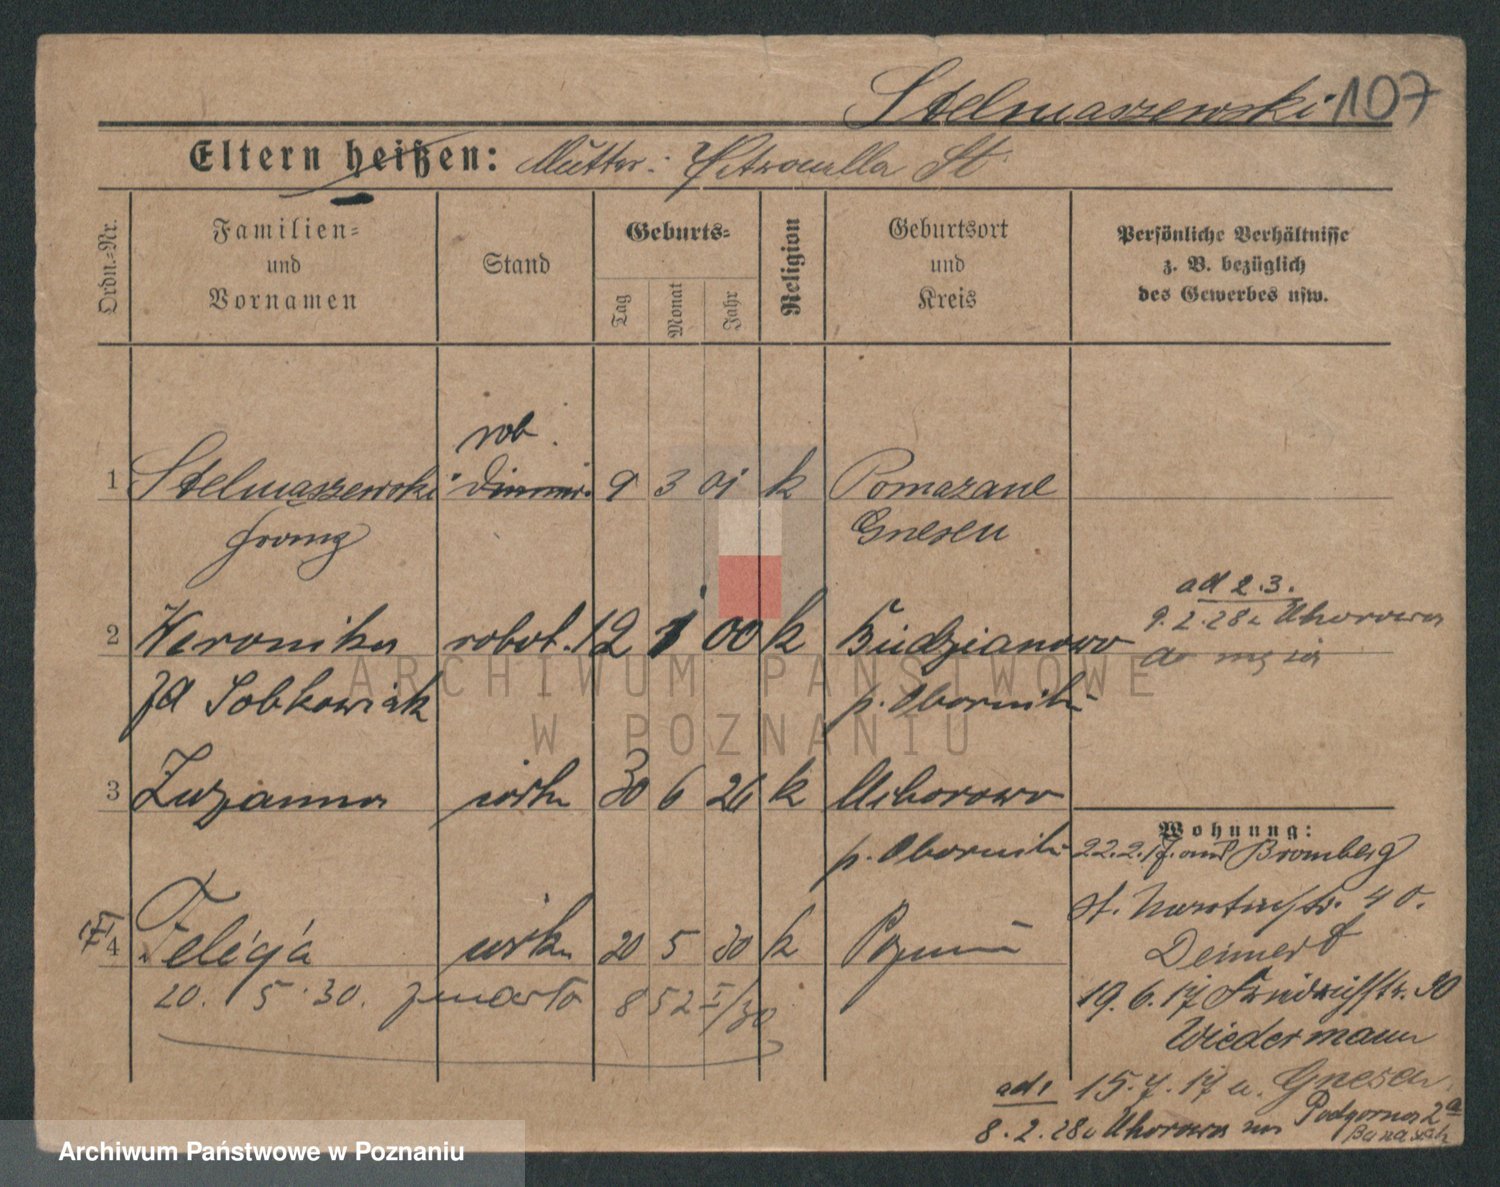 Stelmaszewski 107
Eltern heißen: Mutter: Petronella St
Ordn.=Nr.
Familien=
und
Vornamen
Stand
Geburts=
Tag
Monat
Jahr
Religion
Geburtsort
und
Kreis
Persönliche Verhältnisse
z. B. bezüglich
des Gewerbes usw.
rob.
1 Stelmaszewski 9 3 01 k Pomazane
Franz Gnesen
ad 2.3.
9.2.28
2 Weronika robot. 12 1 00 k Budzianowo
do męża
zd Sobkowiak p. Oborniki
3 Zuzanna córka 30 6 26 k Uchorowo
p. Oborniki
Wohnung:
22.2.17. aus Bromberg
St. Martinstr. 40.
Deinert
4 Felicja córka 20 5 30 k Poznań
20. 5. 30. zmarła 852 I/30
19.6.17 Friedrichstr. 30
Wiedermann
ad 1 15.7.17 n. Gnesen
8.2.28 Podgorna 2a
ARCHIWUM PAŃSTWOWE
W POZNANIU
Archiwum Państwowe w Poznaniu